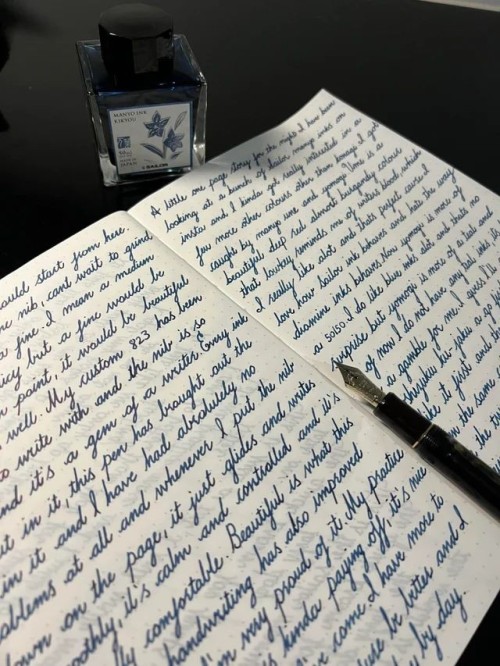 MANYO INK
KIKYOU
SAILOR
ould start from here.
e nib, cant wait to grind
a fine. I mean a medium
icy but a fine would be
n point, it would be beautiful
well. My custom 823 has been
to write with and the nib is so
nd it's a gem of a writer. Every ink
ut in it, this pen has brought out the
in it and I have had absolutely no
oblems at all and whenever I put the nib
own on the page, it just glides and writes
oothly, it's calm and controlled and it's
ly comfortable. Beautiful is what this
handwriting has also improved
I'm very proud of it. My practice
is kinda paying off, it's nice
come I have more to
be better and I
by day.
A little one page story for the night. I have been
looking at a bunch of Sailor manyo inks on
insta and I kinda got really interested in a
few more other colours other than konagi. I got
caught by manyo ume and yomogi. Ume is a
beautiful deep red almost burgundy colour
that lowkey reminds me of writers blood which
I really like alot and thats perfect cause I
love how Sailor ink behaves and hate the way
diamine inks behave. Now yomogi is more of
a 50/50. I do like blue inks alot and thats no
surprise but yomogi is more of a teal and
of now I do not have any teal inks
a gamble for me. I guess I'll
shinjuku
like it just
the same